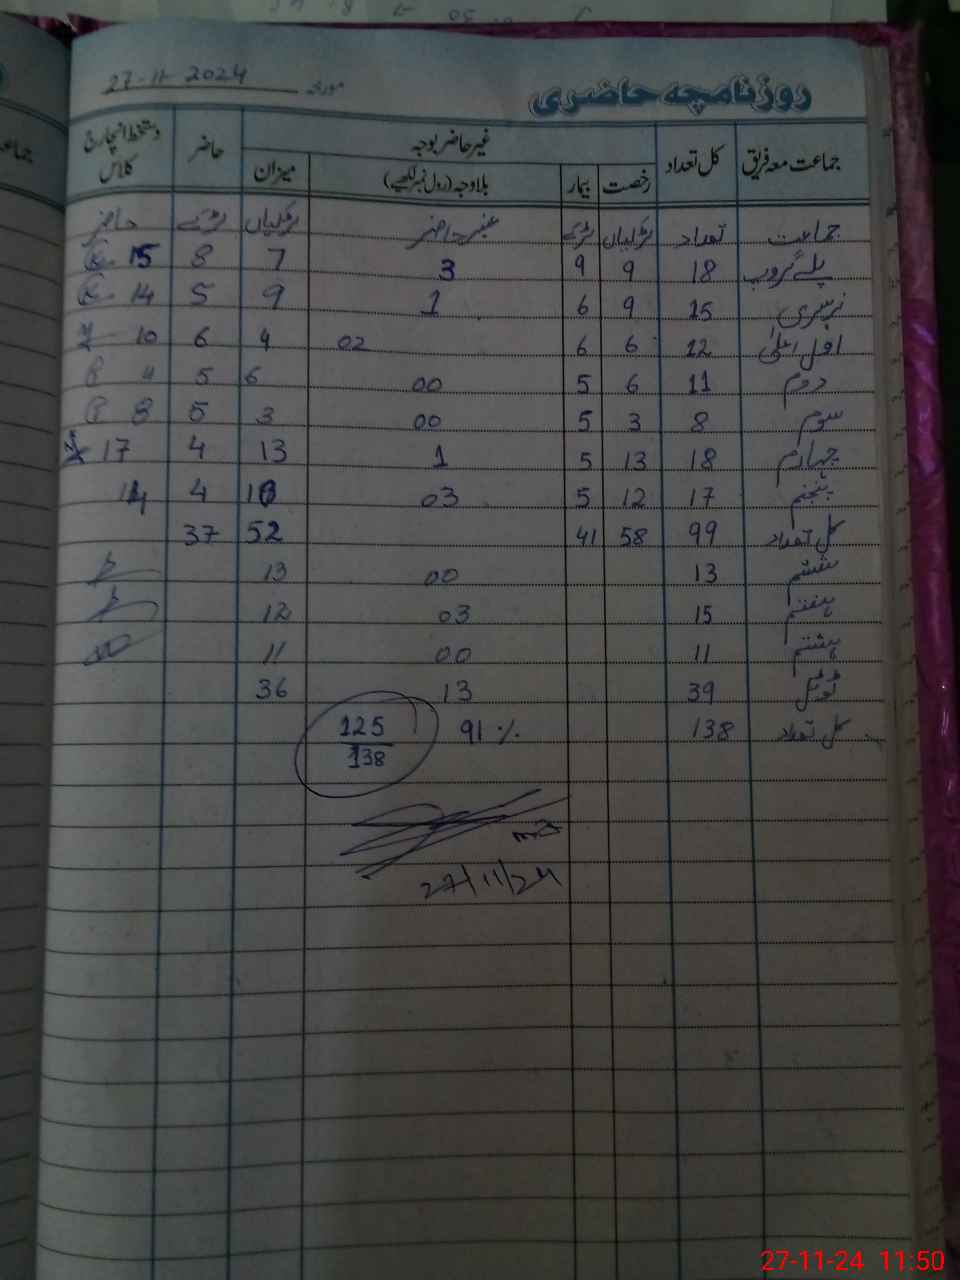 روزنامچہ حاضری مورخہ 27-11-2024
جماعت معہ فریق کل تعداد غیر حاضر بوجہ حاضر دستخط انچارج کلاس
رخصت بیمار بلاوجہ (رول نمبر لکھیے) میزان
جماعت تعداد لڑکیاں لڑکے غیر حاضر لڑکیاں لڑکے حاضر
پلے گروپ 18 9 9 3 7 8 15
نرسری 15 9 6 1 9 5 14
اول اعلیٰ 12 6 6 02 4 6 10
دوم 11 6 5 00 6 5
سوم 8 3 5 00 3 5 8
چہارم 18 13 5 1 13 4 17
پنجم 17 12 5 03 10 4 14
کل تعداد 99 58 41 52 37
ششم 13 00 13
ہفتم 15 03 12
ہشتم 11 00 11
ٹوٹل 39 13 36
کل تعداد 138 91 % 125
138
27/11/24
27-11-24 11:50